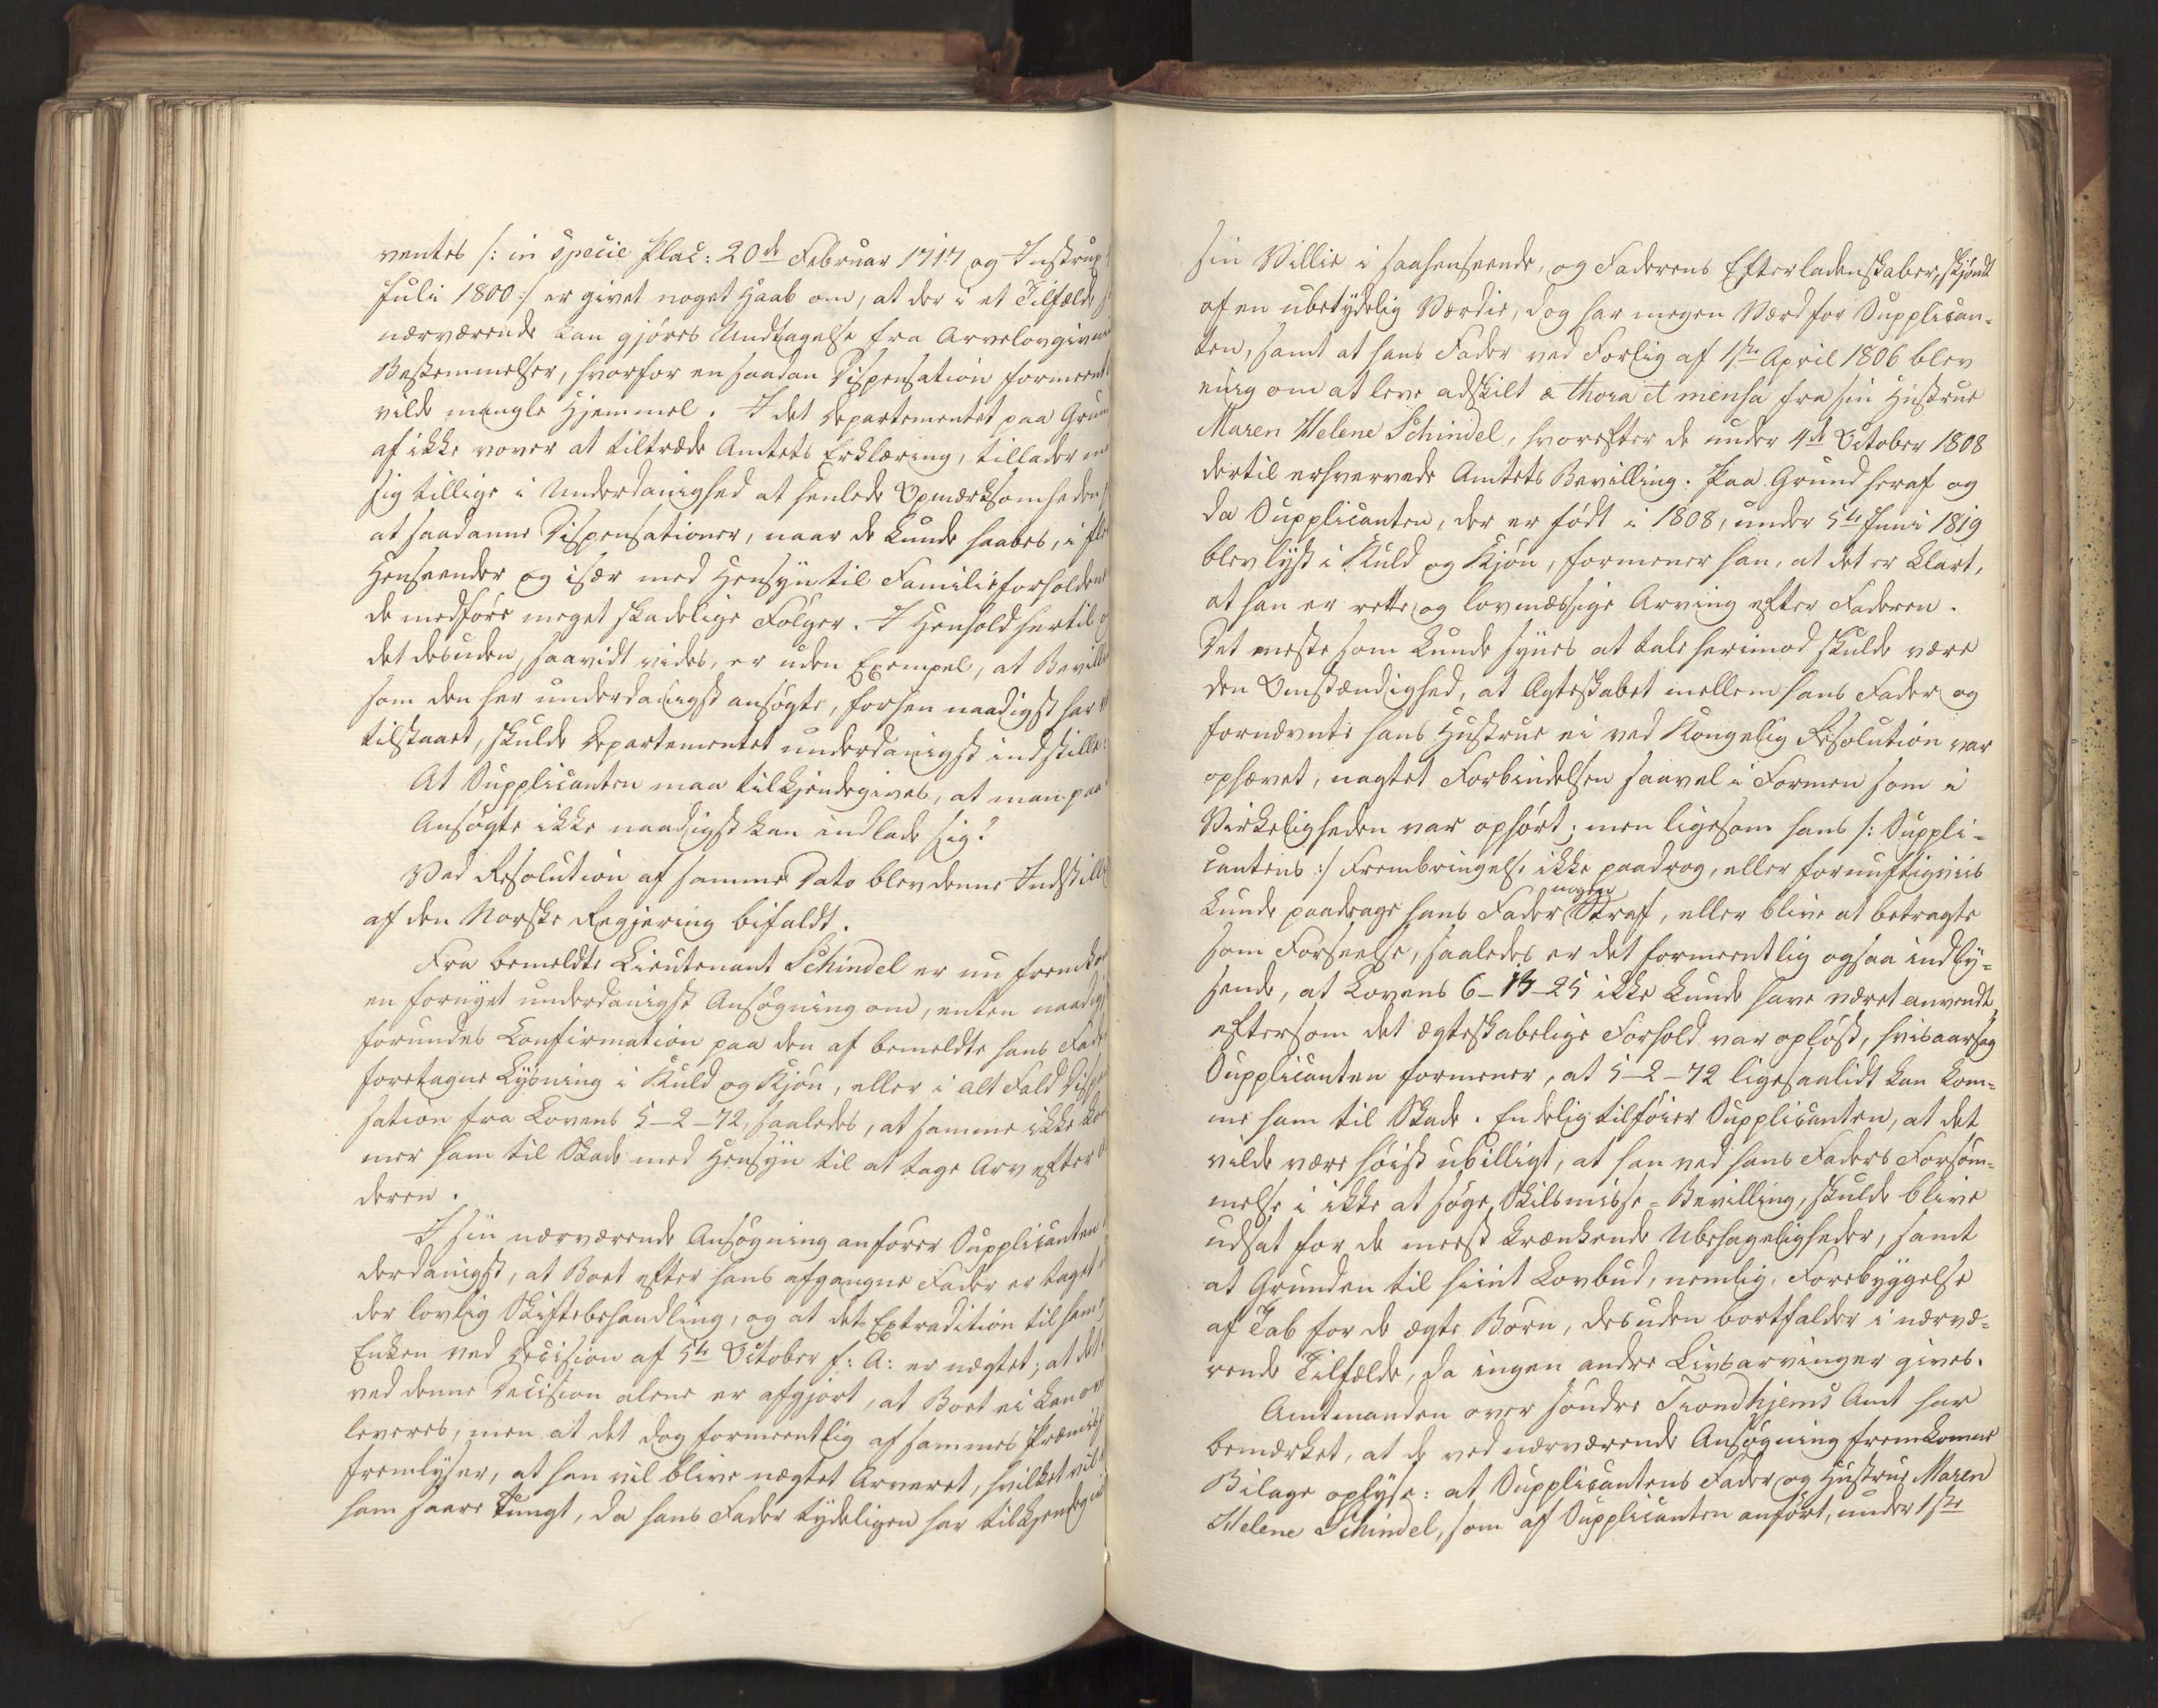 ventes /: in specie Plac: 20de Februar 1717 og Instrux
Juli 1800 :/ er givet noget Haab om, at der i et Tilfælde
nærværende kan gjöres Undtagelse fra Arvelovgivni
Bestemmelser, hvorfor en saadan Dispensation formeent
vilde mangle Hjemmel. I det Departementet paa Grun
af ikke vover at tiltræde Amtets Erklæring, tillader m
sig tillige i Underdanighed at henlede Opmærksomheden
at saadanne Dispensationer, naar de kunde haabes, i fle
Henseender og især med Hensyn til Familieforholdene
de medföre meget skadelige Fölger. I Henhold hertil
det desuden, saavidt vides, er uden Exempel, at Bevilli
som den her underdanigst ansögte, forhen naadigst har
tilstaaet, skulde Departementet underdanigst indstille:
At Supplicanten maa tilkjendegives, at man paa
Ansögte ikke naadigst kan indlade sig?
Ved Resolution af samme Dato blev denne Indstilli
af den Norske Regjering bifaldt.
Fra bemeldte Lieutenant Schindel er nu fremko
en fornyet underdanigst Ansögning om, enten naadig
forundes Confirmation paa den af bemeldte hans Fade
foretagne Lysning i Kuld og Kjön, eller i alt Fald Dispe
sation fra Lovens 5-2-72, saaledes, at samme ikke ko
mer ham til Skade med Hensyn til at tage Arv efter
deren.
I sin nærværende Ansögning anförer Supplicanten
derdanigst, at Boet efter hans afgangne Fader er taget
der lovlig Skiftebehandling, og at dets Extradition til ham
Enken ved Decision af 5te October f: A: er nægtet; at det
ved denne Decision alene er afgjort, at Boet ei kan
leveres, men at det dog formeentlig af sammes Præmiss
fremlyser, at han vil blive nægtet Arveret, hvilket vil
ham saare tungt, da hans Fader tydeligen har tilkjendegi
sin Villie i saahenseende, og Faderens Efterladenskaber, skjöndt
af en ubetydelig Værdie, dog har megen Værd for Supplican-
ten, samt at hans Fader ved Forlig af 1ste April 1806 blev
enig om at leve adskilt a thora et mensa fra sin Hustrue
Maren Helene Schindel, hvorefter de under 4de October 1808
dertil erhvervede Amtets Bevilling. Paa Grund heraf og
da Supplicanten, der er födt i 1808, under 5te Juni 1819
blev lyst i Kuld og Kjön, formener han, at det er klart,
at han er rette og lovmæssige Arving efter Faderen.
Det meste som kunde synes at tale herimod skulde være
den Omstændighed, at Ægteskabet mellem hans Fader og
fornævnte hans Hustrue ei ved Kongelig Resolution var
ophævet, uagtet Forbindelsen saavel i Formen som i
Virkeligheden var ophört; men ligesom hans /: Suppli-
cantens :/ Frembringelse ikke paadrog, eller fornuftigviis
kunde paadrage hans Fader nogen Straf, eller blive at betragte
som Forseelse, saaledes er det formeentlig ogsaa indly-
sende, at Lovens 6-13-25 ikke kunde have været anvendt,
eftersom det ægteskabelige Forhold var oplöst, hvisaarsag
Supplicanten formener, at 5-2-72 ligesaalidt kan kom-
me ham til Skade. Endelig tilföier Supplicanten, at det
vilde være höist ubilligt, at han ved hans Faders Forsöm-
melse i ikke at söge Skilsmisse-Bevilling, skulde blive
udsat for de meest krænkende Ubehageligheder, samt
at Grunden til hiint Lovbud, nemlig, Forebyggelse
af Tab for de ægte Börn, desuden bortfalder i nærvæ-
rende Tilfælde, da ingen andre Livsarvinger gives.
Amtmanden over söndre Trondhjems Amt har
bemærket, at de ved nærværende Ansögning fremkomne
Bilage oplyse: at Supplicantens Fader og Hustrue Maren
Helene Schindel, som af Supplicanten anfört, under 1ste